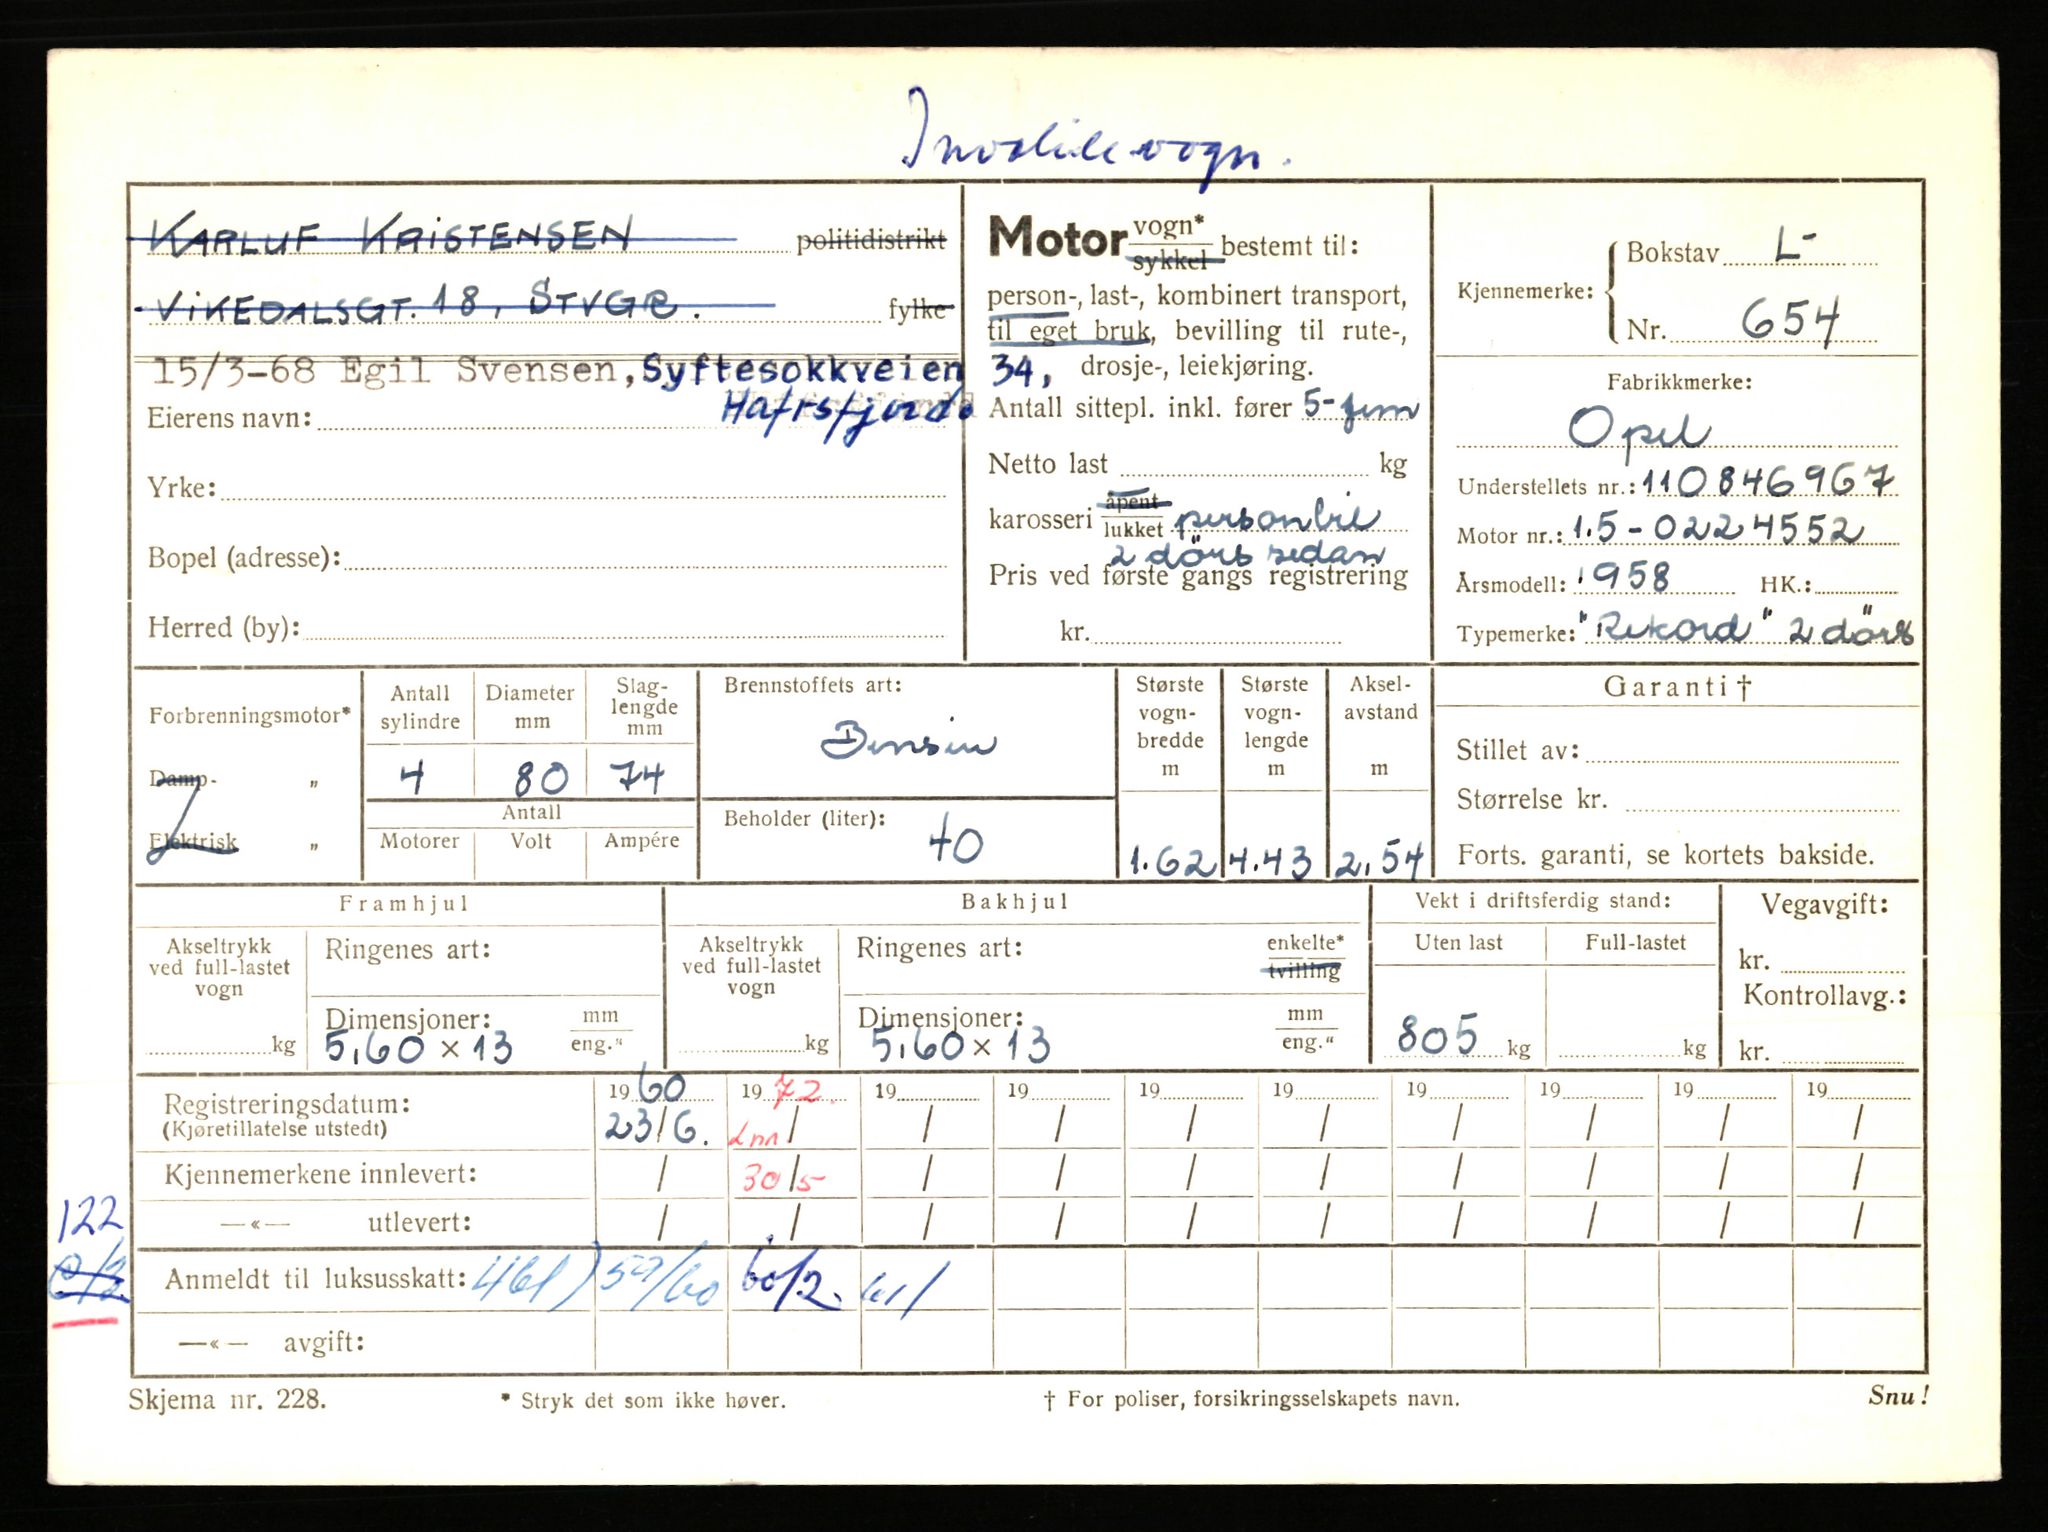 Invalidevogn.
KARLUF KRISTENSEN politidistrikt
VIKEDALSGT. 18, STVGR. fylke
15/3-68 Egil Svensen, Syftesokkveien 34,
Hafrsfjord.
Eierens navn:
Yrke:
Bopel (adresse):
Herred (by):
Motor vogn* sykkel bestemt til:
person-, last-, kombinert transport,
til eget bruk, bevilling til rute-,
drosje-, leiekjøring.
Antall sittepl. inkl. fører 5-fem
Netto last kg
karosseri åpent lukket personbil
2 dörs sedan
Pris ved første gangs registrering
kr.
Kjennemerke: Bokstav L-
Nr. 654
Fabrikkmerke:
Opel
Understellets nr.: 110846967
Motor nr.: 1.5-0224552
Årsmodell: 1958 HK.:
Typemerke: "Rekord" 2 dörs
Forbrenningsmotor*
Damp- „
Elektrisk „
Antall sylindre
4
Diameter mm
80
Slag-lengde mm
74
Antall
Motorer Volt Ampére
Brennstoffets art:
Bensin
Beholder (liter):
40
Største vogn-bredde m
1.62
Største vogn-lengde m
4.43
Aksel-avstand m
2.54
Garanti †
Stillet av:
Størrelse kr.
Forts. garanti, se kortets bakside.
Framhjul
Akseltrykk ved full-lastet vogn
kg
Ringenes art:
Dimensjoner: mm eng."
5.60 x 13
Bakhjul
Akseltrykk ved full-lastet vogn
kg
Ringenes art: enkelte* tvilling
Dimensjoner: mm eng."
5.60 x 13
Vekt i driftsferdig stand:
Uten last Full-lastet
805 kg kg
Vegavgift:
kr.
Kontrollavg.:
kr.
Registreringsdatum: 1960 1972 19 19 19 19 19 19 19 19
(Kjøretillatelse utstedt) 23/6. / / / / / / / / /
Kjennemerkene innlevert: / 30/5 / / / / / / / /
—«— utlevert: / / / / / / / / / /
122
Anmeldt til luksusskatt: 461) 59/60 60/2. 61/
—«— avgift:
Skjema nr. 228. * Stryk det som ikke høver. † For poliser, forsikringsselskapets navn. Snu!